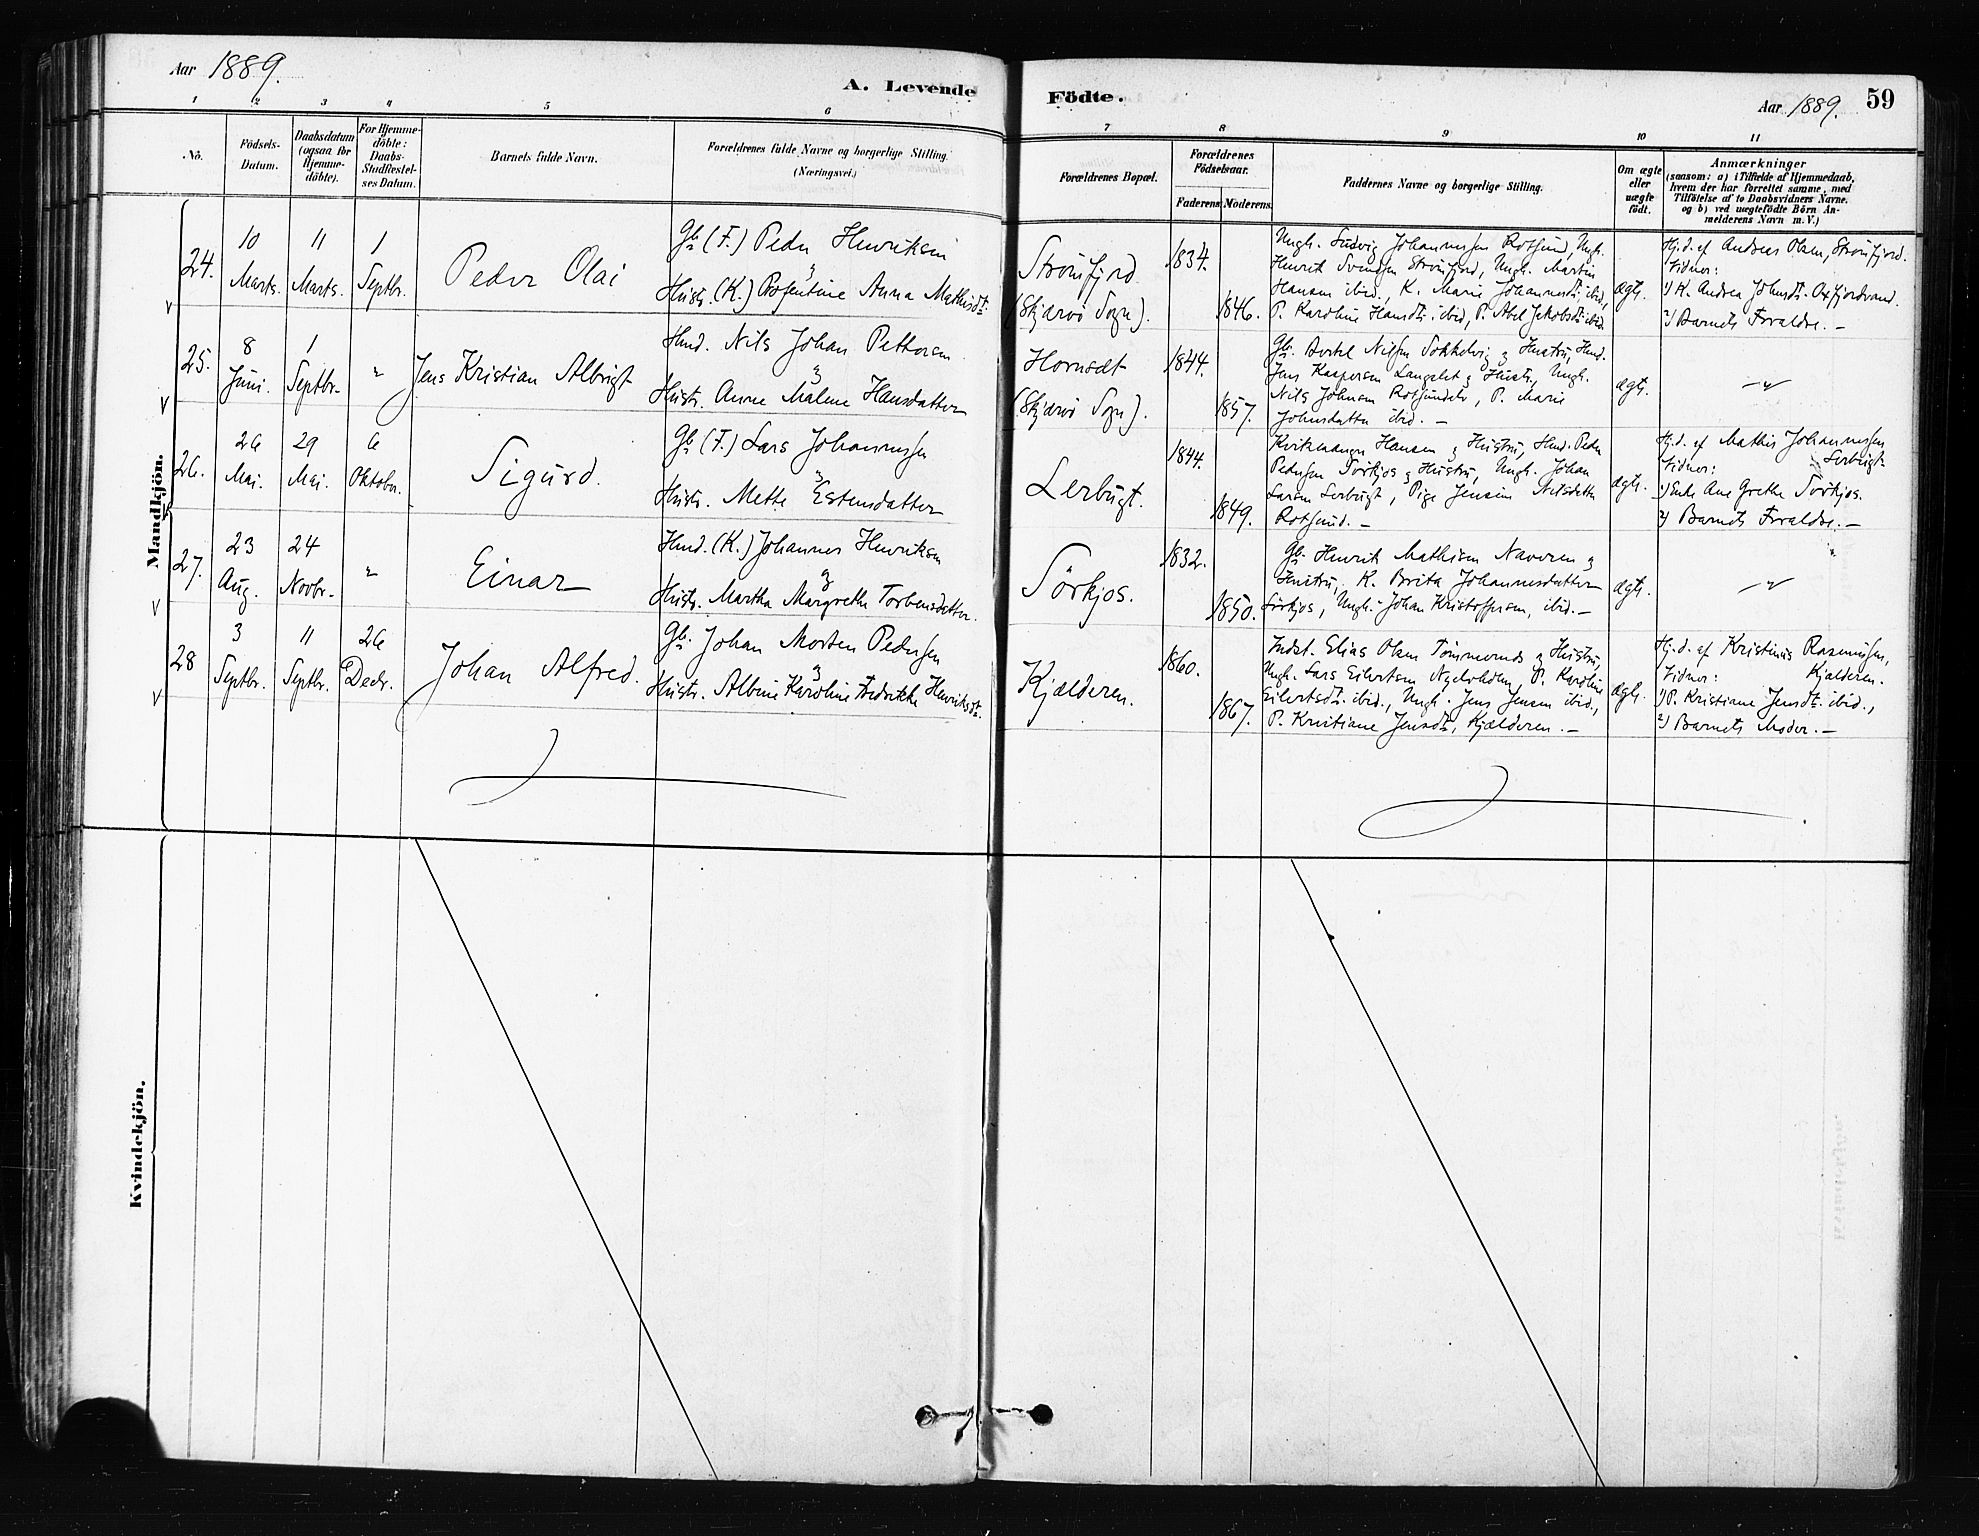 Aar 1889.
A. Levende
1 2 3 4 5 6
No.
Födsels-
Datum.
Daabsdatum
(ogsaa for
Hjemme-
döbte).
For Hjemme-
döbte:
Daabs-
Stadfæstel-
ses Datum.
Barnets fulde Navn.
Forældrenes fulde Navne og borgerlige Stilling.
(Næringsvei.)
Mandkjön.
24.
10
Marts.
11
Marts.
1
Septbr.
Peder Olai
Gb. (F.) Peder Henriksen
&
Hustr. (K.) Anna Mathisdt.
25.
8
Juni.
1
Septbr.
"
Jens Kristian Albrigt
Hmd. Nils Johan Pettersen
&
Hustr. Anne Malene Hansdatter
26.
26
Mai.
29
Mai.
6
Oktober.
Sigurd.
Gb. (F.) Lars Johannessen
&
Hustr. Mette Estensdatter
27.
23
Aug.
24
Novbr.
"
Einar
Hmd. (K.) Johannes Henriksen
&
Hustr. Martha Margrethe Torbensdatter.
28
3
Septbr.
11
Septbr.
26
Decbr.
Johan Alfred.
Gb. Johan Morten Pedersen
&
Hustr. Albine Karoline Fredrikke Henriksdt.
Kvindekjön.
Födte.
Aar 1889. 59
7 8 9 10 11
Forældrenes Bopæl.
Forældrenes
Födselsaar.
Faderens. Moderens.
Faddernes Navne og borgerlige Stilling.
Om ægte
eller
uægte
födt.
Anmærkninger
(saasom: a) i Tilfælde af Hjemmedaab,
hvem der har forrettet samme, med
Tilföielse af to Daabsvidners Navne.
og b) ved uægtefödte Börn An-
melderens Navn m. V.)
Strömfjord
(Skjervö Sogn).
1834.
1846.
Ungk. Ludvig Johannessen Rotsund, Ungk.
Henrik Svendsen Strömfjord, Ungk. Martin
Hansen ibid., K. Marie Johannesdt. ibid.,
P. Karoline Hansdt. ibid, P. Abel Jakobsdt. ibid.
ægte.
Hj.d. af Andreas Olsen, Strömfjord.
Vidner:
1) K. Andrea Johnsdt. Oxfjordvand.
2) Barnets Forældre. —
Hornsæt
(Skjervö Sogn).
1844.
1857.
Gb. Bertel Nilsen Sokkelvig & Hustru, Hmd.
Jens Kaspersen Langslet & Hustr., Ungk.
Nils Johnsen Rotsundelv, P. Marie
Johnsdatter ibid. —
ægte.
— " —
Lerbugt.
1844.
1849.
Kvikmænger Hansen & Hustru, Hmd. Peder
Pedersen Sörkjos & Hustru, Ungk. Johan
Larsen Lerbugt, Pige Jensine Nilsdatter
Rotsund. —
ægte.
Hj.d. af Mathis Johannessen
Lerbugt.
Vidner:
1) Enke Ane Grethe Sörkjos.
2) Barnets Forældre. —
Sörkjos.
1832.
1850.
Gb. Henrik Mathisen Naveren &
Hustru, K. Berita Johannesdatter
Sörkjos, Ungk. Johan Kristoffersen, ibid. —
ægte.
— " —
Kjælderen.
1860.
1867.
Indst. Elias Olsen Tömmernes & Hustru,
Ungk. Lars Eilertsen Nyelvholm, P. Karoline
Eilertsdt. ibid., Ungk. Jens Jensen ibid.,
P. Kristiane Jensdt., Kjælderen. —
ægte.
Hj.d. af Kristinus Rasmussen,
Kjælderen.
Vidner:
1) P. Kristiane Jensdt. ibid.,
2) Barnets Moder. —